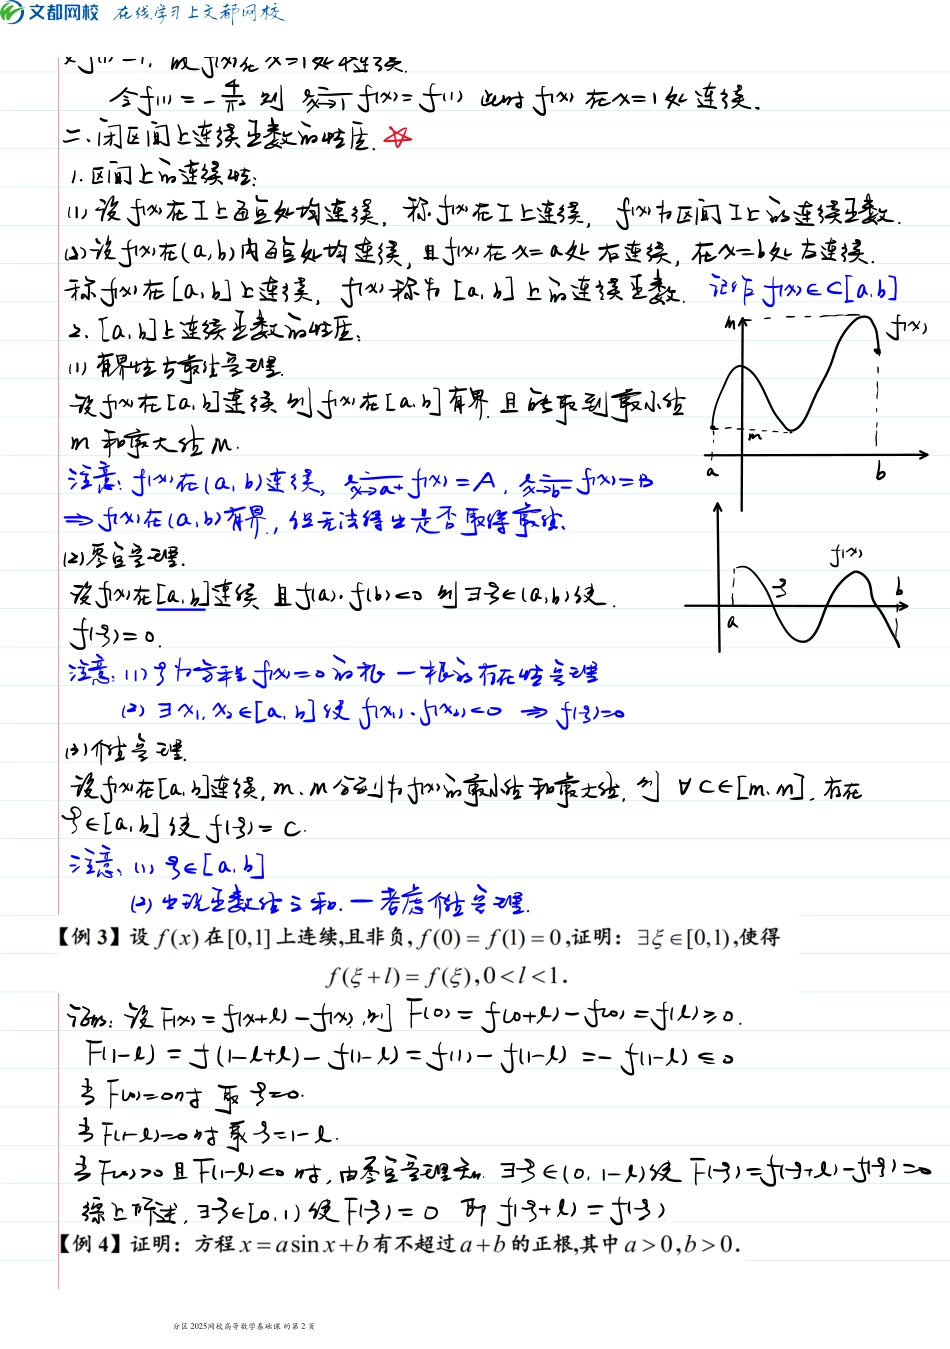 文都网校 在线学习上文都网校
令f(1)=-4/π 则 lim x→1 f(x)=f(1) 此时 f(x) 在x=1处连续.
二.闭区间上连续函数的性质.
1.区间上的连续性:
(1)设f(x)在I上每点处均连续, 称f(x)在I上连续, f(x)为区间I上的连续函数.
(2)设f(x)在(a,b)内每点处均连续,且f(x)在x=a处右连续,在x=b处左连续.
称f(x)在[a,b]上连续, f(x)称为[a,b]上的连续函数. 记作f(x)∈C[a,b]
2.[a,b]上连续函数的性质:
(1)有界性与最值定理.
设f(x)在[a,b]连续 则f(x)在[a,b]有界.且能取到最小值
m 和最大值M.
注意: f(x)在(a,b)连续, lim x→a+ f(x)=A, lim x→b- f(x)=B
⇒f(x)在(a,b)有界, 但无法得出是否取得最值.
M f(x)
m
a b
(2)零点定理.
设f(x)在[a,b]连续 且f(a)·f(b)<0 则∃ξ∈(a,b)使
f(ξ)=0.
f(x)
a ξ b
注意: (1)ξ为方程f(x)=0的根 — 根的存在性定理
(2) ∃x₁,x₂∈[a,b]使 f(x₁)·f(x₂)<0 ⇒ f(ξ)=0
(3)介值定理.
设f(x)在[a,b]连续, m、M分别为f(x)的最小值和最大值, 则 ∀C∈[m,M], 存在
ξ∈[a,b]使 f(ξ)=C.
注意: (1) ξ∈[a,b]
(2)出现函数值之和.—考虑介值定理.
【例 3】设 f(x) 在 [0,1] 上连续,且非负, f(0) = f(1) = 0 ,证明：∃ξ∈[0,1),使得
f(ξ+l) = f(ξ), 0<l<1.
证明: 设F(x)=f(x+l)-f(x),则 F(0)=f(0+l)-f(0)=f(l)≥0.
F(1-l)=f(1-l+l)-f(1-l)=f(1)-f(1-l)=-f(1-l)≤0
当F(0)=0时 取 ξ=0.
当F(1-l)=0时取ξ=1-l.
当F(0)>0且F(1-l)<0时,由零点定理知. ∃ξ∈(0,1-l)使 F(ξ)=f(ξ+l)-f(ξ)=0
综上所述, ∃ξ∈[0,1)使F(ξ)=0 即 f(ξ+l)=f(ξ)
【例 4】证明：方程 x = a sin x + b 有不超过 a + b 的正根,其中 a > 0, b > 0.
分区 2025网校高等数学基础课 的第 2 页